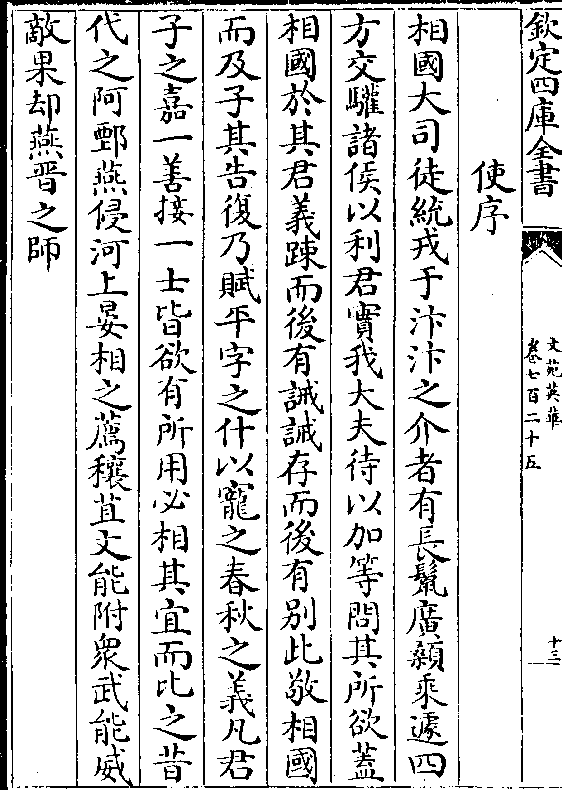 欽定四庫全書
文苑英華
卷七百二十五
十三
使序
相國大司徒統戎于汴汴之介者有長鬣廣顙乗遽四
方交驩諸侯以利君實我大夫待以加等問其所欲葢
相國於其君義踈而後有誡誡存而後有别此敬相國
而及子其告復乃賦平字之什以寵之春秋之義凡君
子之嘉一善接一士皆欲有所用必相其宜而比之昔
代之阿鄄燕侵河上晏相之薦穰苴文能附衆武能威
敵果却燕晋之師